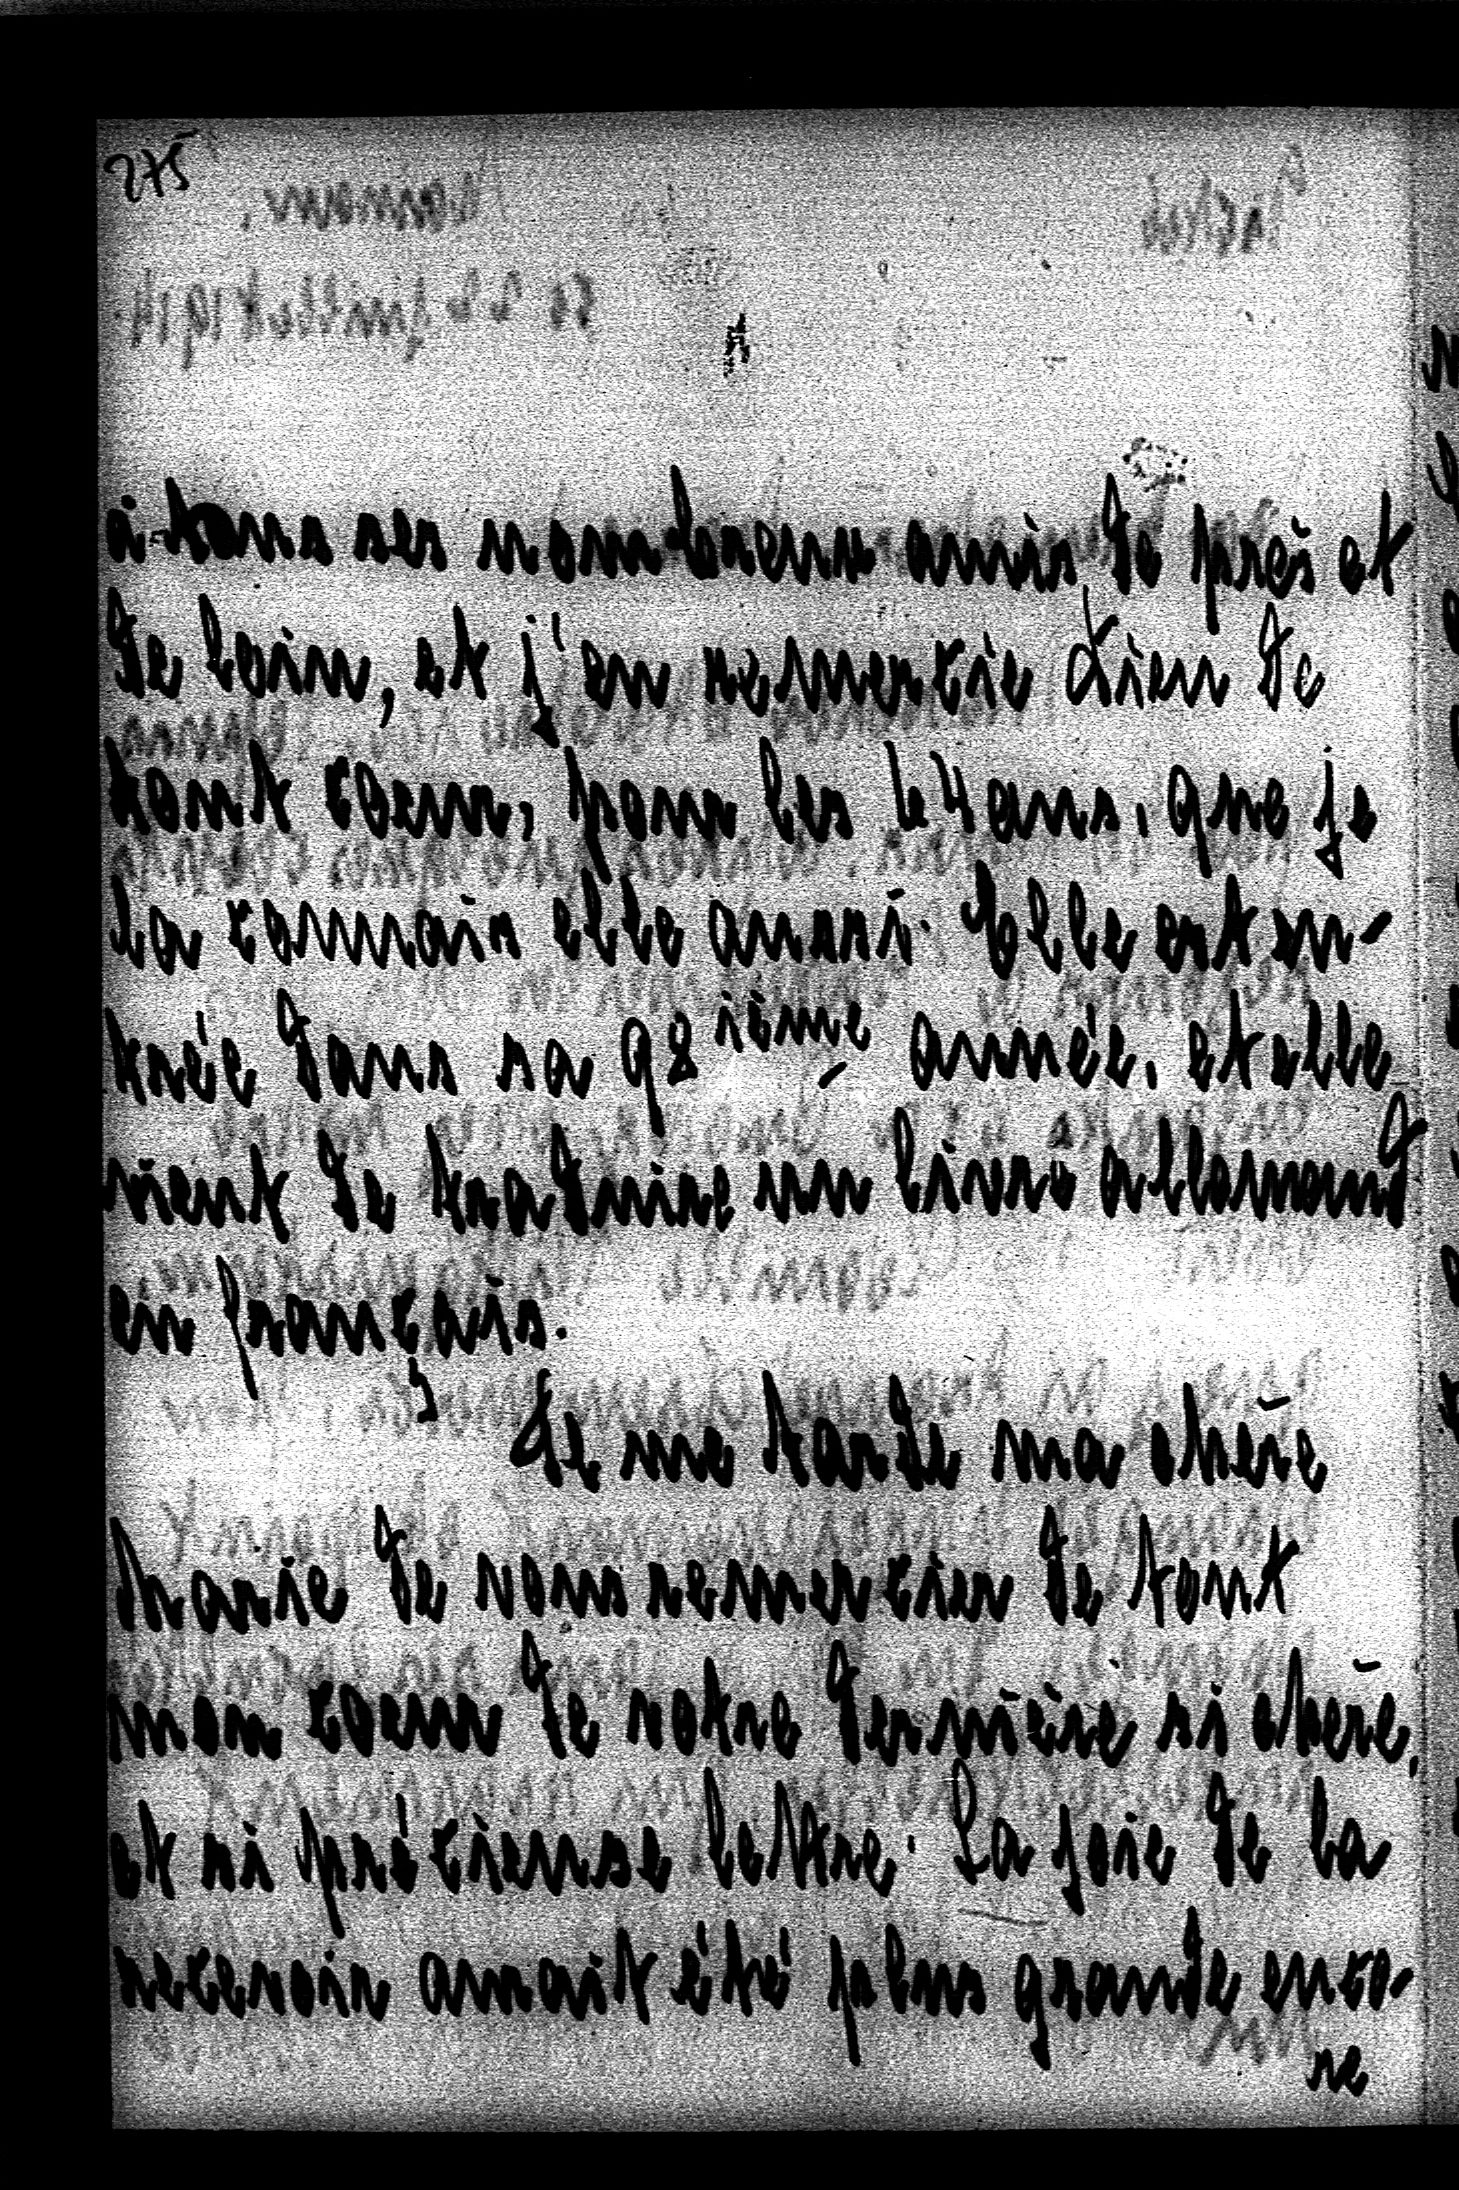 275
à tous ses nombreux amis de près et
de loin, et j'en remercie Dieu de
tout coeur, pour les 44 ans, que je
la connais elle aussi. Elle est en-
trée dans sa 92 ième année, et elle
vient de traduire un livre allemand
en français.
Il me tarde ma chère
Marie de vous remercier de tout
mon coeur de votre dernière si chère,
et si précieuse lettre. La joie de la
recevoir aurait été plus grande enco-
re